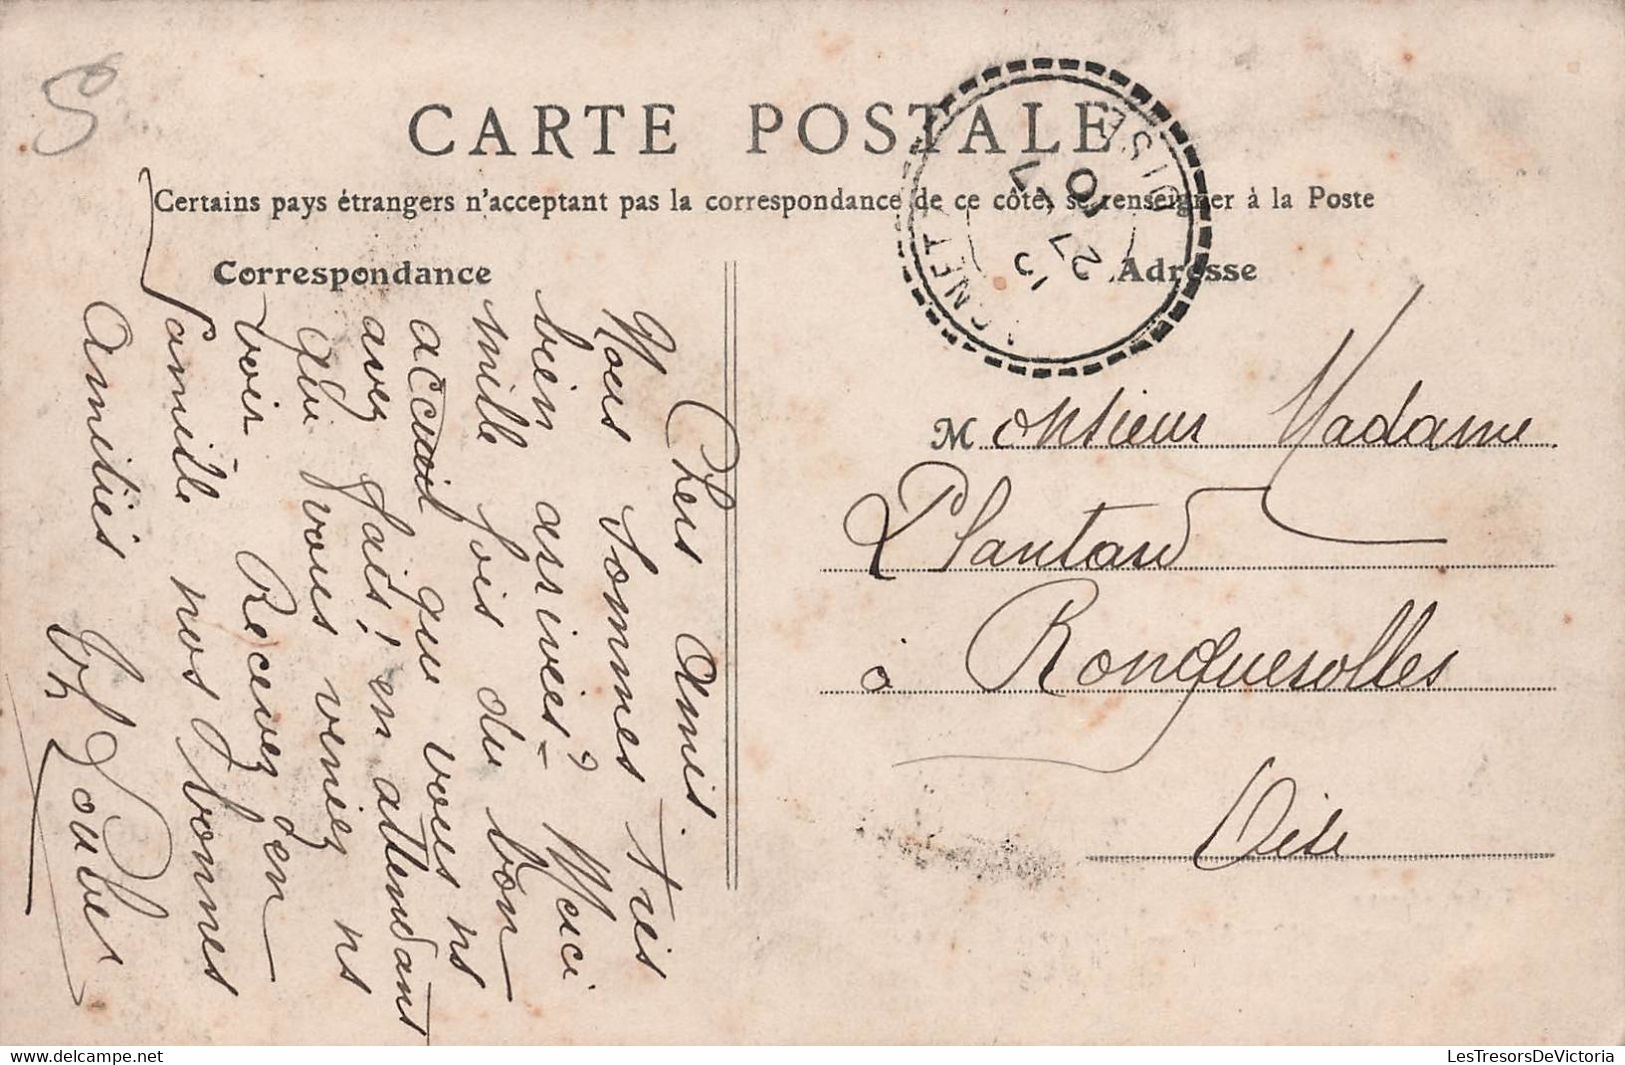 CARTE POSTALE
Certains pays étrangers n'acceptant pas la correspondance de ce côté, se renseigner à la Poste
Correspondance
Adresse
OISE
27
10
Chers Amis.
Nous sommes très
bien arrivés = Merci
mille fois du bon
accueil que vous ns
avez fait, en attendant
que vous veniez ns
voir Recevez d'en
famille nos bonnes
Amitiés
Loubes
Monsieur Madame
Plantard
à Ronquerolles
Oise
LesTresorsDeVictoria